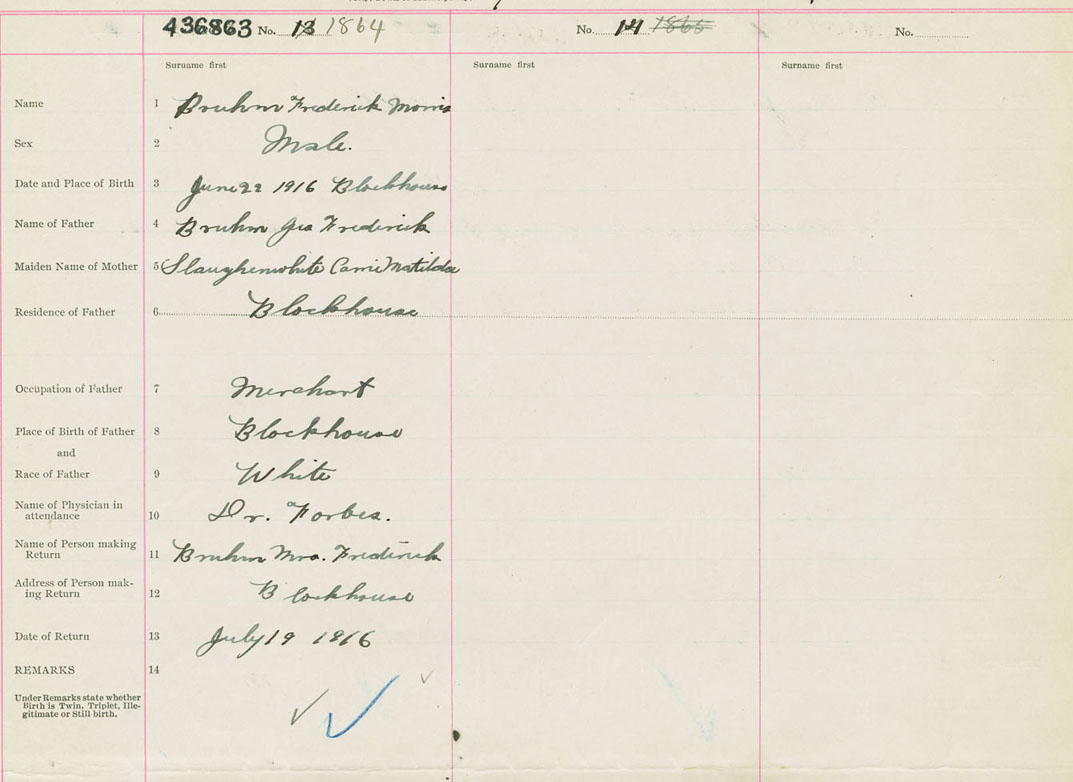 436863 No. 13 1864 No. 14 1865 No.
Surname first Surname first Surname first
Name 1 Bruhm Frederick Morris
Sex 2 Male.
Date and Place of Birth 3 June 22 1916 Blockhouse
Name of Father 4 Bruhm Geo Frederick
Maiden Name of Mother 5 Slaughenwhite Carrie Matilda
Residence of Father 6 Blockhouse
Occupation of Father 7 Merchant
Place of Birth of Father 8 Blockhouse
and
Race of Father 9 White
Name of Physician in
attendance 10 Dr. Forbes.
Name of Person making
Return 11 Bruhm Mrs. Frederick
Address of Person mak-
ing Return 12 Blockhouse
Date of Return 13 July 19 1916
REMARKS 14
Under Remarks state whether
Birth is Twin, Triplet, Ille-
gitimate or Still-birth.